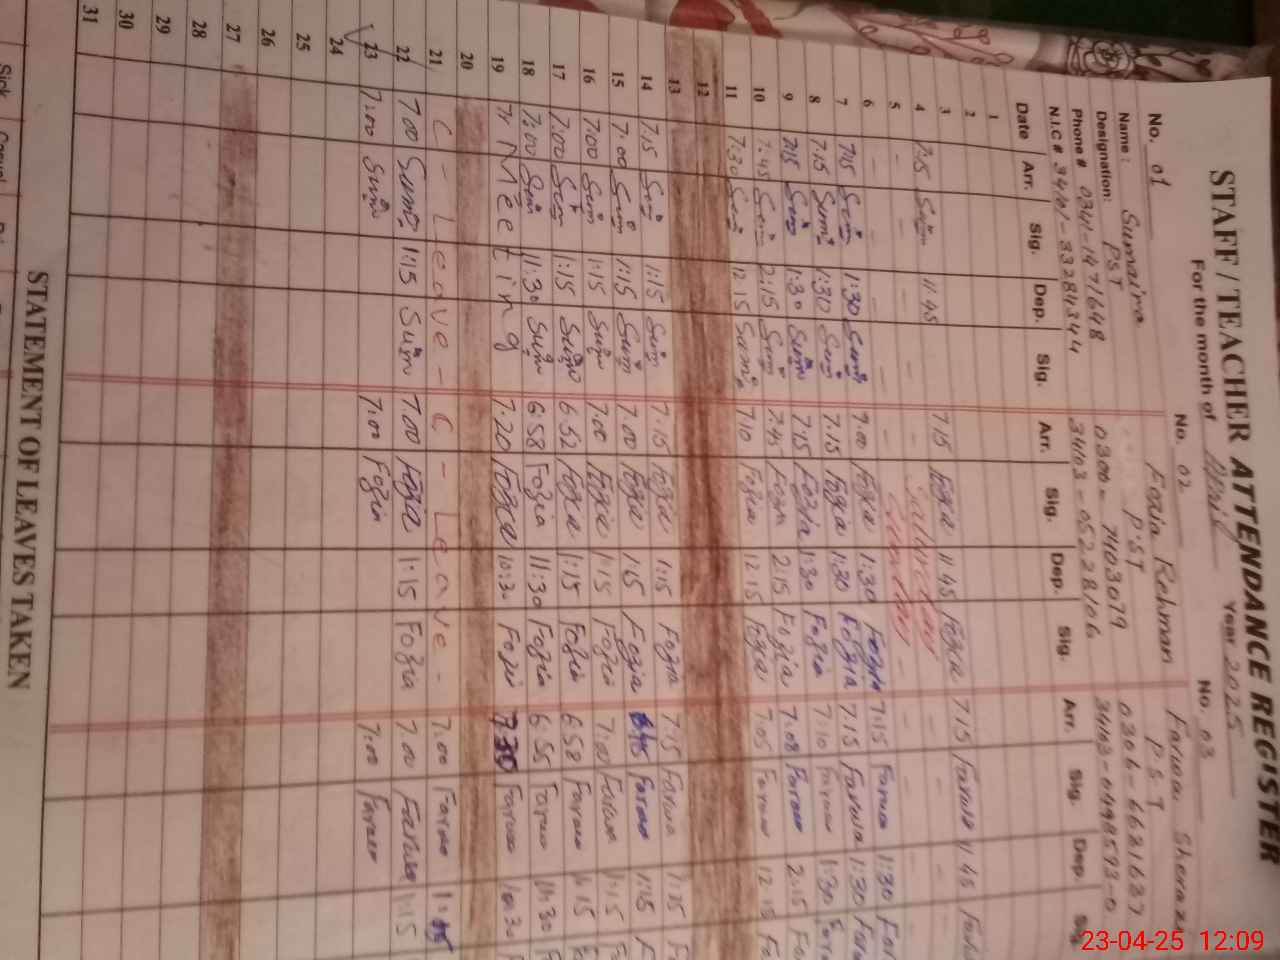 STAFF / TEACHER ATTENDANCE REGISTER
For the month of April Year 2025
No. 01 No. 02 No. 03
Name: Sumaira Fozia Rehman Farwa Sheraz
Designation: PST P.ST P.S.T
Phone # 0341-1471648 0300-7103079 0306-6681687
N.I.C # 34101-33284344 34103-05228106
Date Arr. Sig. Dep. Sig. Arr. Sig. Dep. Sig. Arr. Sig. Dep.
1
2
3
4 7:15 Sum 11:45 7:15 Fozia 11:45 Fozia 7:15 Farwa 11:45
5 - - - -
6 - - - -
7 7:15 Sum 1:30 Sum 7:00 Fozia 1:30 Fozia 7:15 Farwa 1:30
8 7:15 Sum 1:30 Sum 7:15 Fozia 1:30 Fozia 7:15 Farwa 1:30
9 7:15 Sum 1:30 Sum 7:15 Fozia 1:30 Fozia 7:10 Farwa 1:30
10 7:45 Sum 2:15 Sum 7:45 Fozia 2:15 Fozia 7:08 Farwa 2:15
11 7:30 Sum 12:15 Sum 7:10 Fozia 12:15 Fozia 7:05 Farwa 12:15
12
13
14 7:15 Sum 1:15 Sum 7:15 Fozia 1:15 Fozia 7:15 Farwa 1:15
15 7:00 Sum 1:15 Sum 7:00 Fozia Fozia Farwa 1:15
16 7:00 Sum 1:15 Sum 7:00 Fozia 1:15 Fozia 7:00 Farwa 1:15
17 7:00 Sum 1:15 Sum 6:52 Fozia 1:15 Fozia 6:58 Farwa 1:15
18 7:00 Sum 11:30 Sum 6:58 Fozia 11:30 Fozia 6:55 Farwa 11:30
19 Meeting 7:20 Fozia 10:30 Fozia 7:30 Farwa 10:30
20
21 C - Leave - C - Leave - 7:00 Farwa
22 7:00 Sum 1:15 Sum 7:00 Fozia 1:15 Fozia 7:00 Farwa 1:15
23 7:00 Sum 7:00 Fozia 7:00 Farwa
24
25
26
27
28
29
30
31
STATEMENT OF LEAVES TAKEN
Sick Casual
23-04-25 12:09